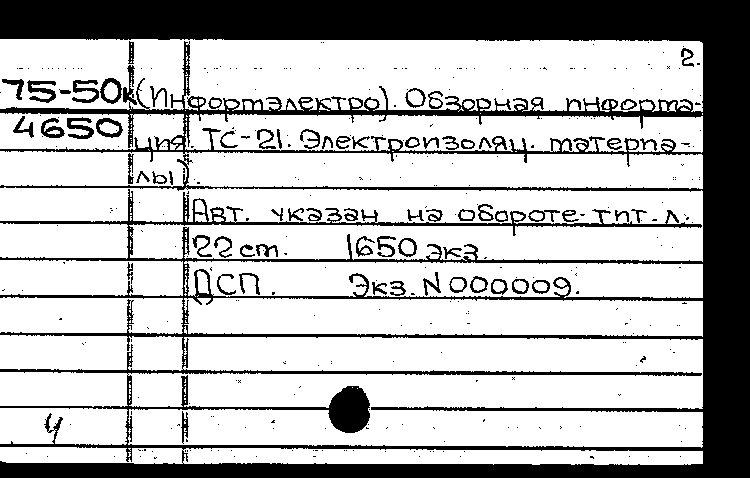 2.
75-50к (Информэлектро). Обзорная информа-
4650 ция. ТС-21. Электроизоляц. материа-
лы).
Авт. указан на обороте тит. л.
22 ст. 1650 экз.
ДСП. Экз. N 000009.
Ч